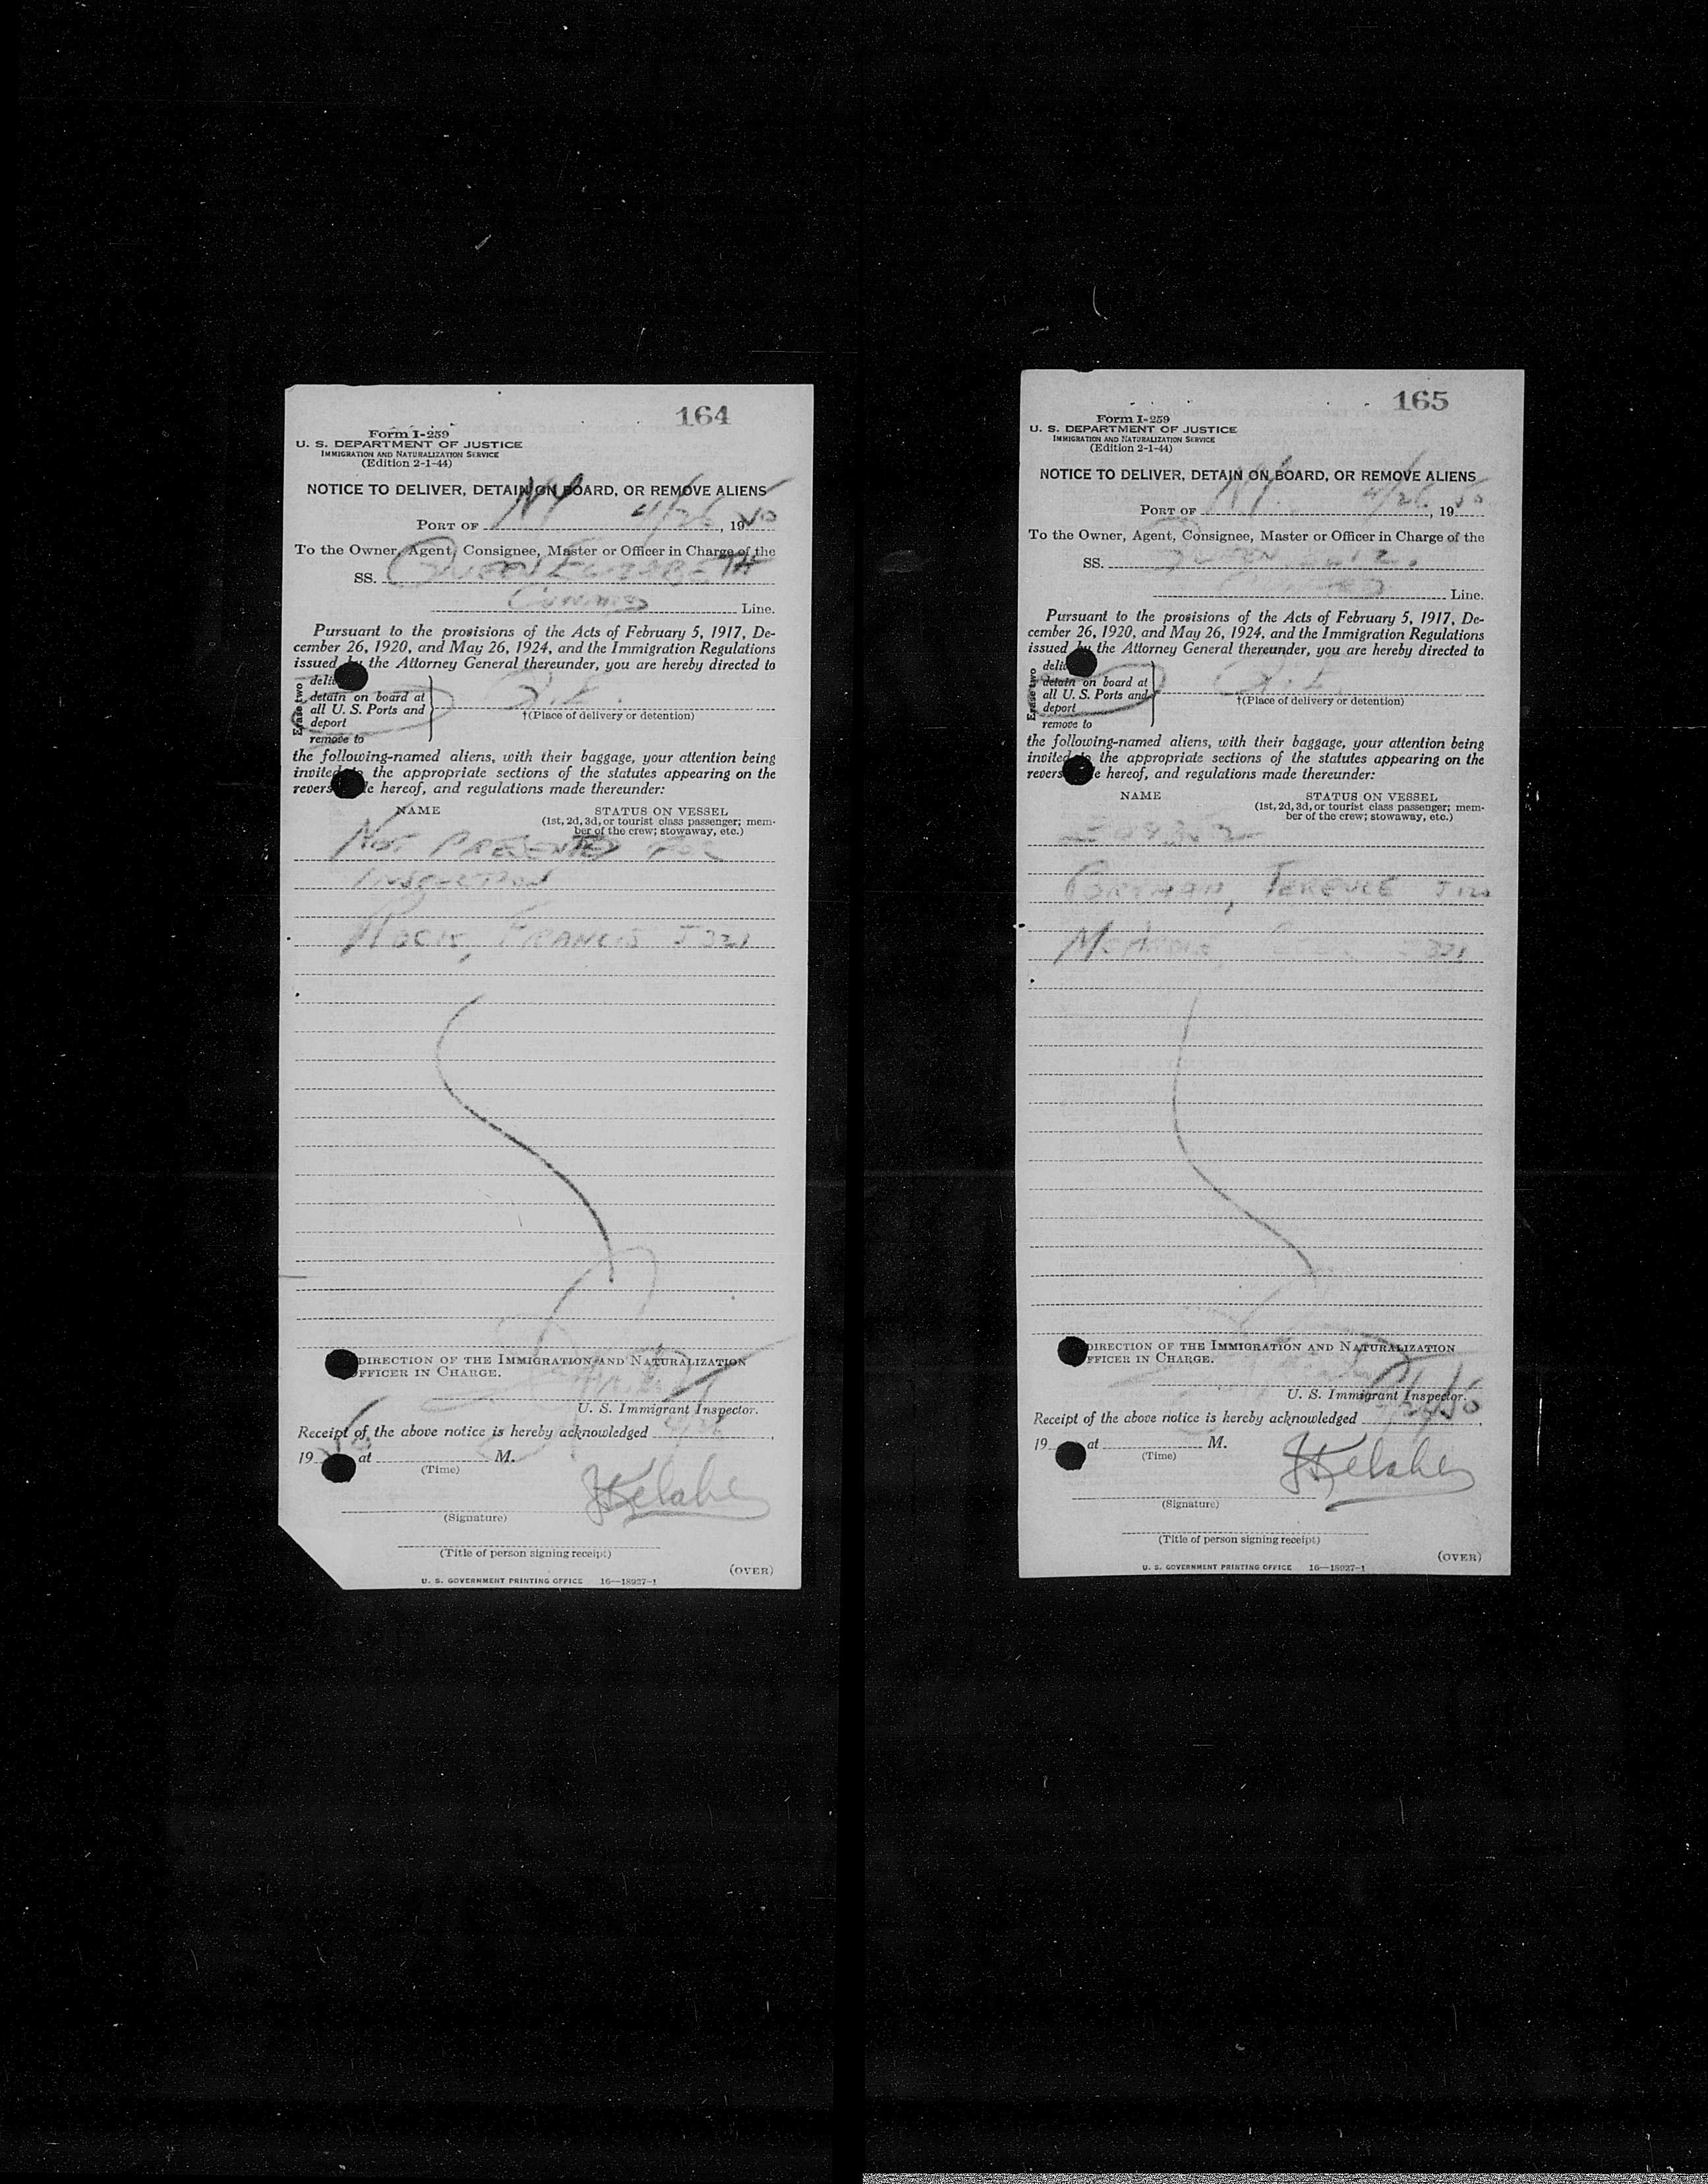 164
Form I-259
U. S. DEPARTMENT OF JUSTICE
IMMIGRATION AND NATURALIZATION SERVICE
(Edition 2-1-44)
NOTICE TO DELIVER, DETAIN ON BOARD, OR REMOVE ALIENS
PORT OF NY 4/26, 1950
To the Owner, Agent, Consignee, Master or Officer in Charge of the
SS. QUEEN ELIZABETH
CUNARD Line.
Pursuant to the provisions of the Acts of February 5, 1917, De-
cember 26, 1920, and May 26, 1924, and the Immigration Regulations
issued by the Attorney General thereunder, you are hereby directed to
Erase two
deli
detain on board at
all U. S. Ports and
deport
remove to
†(Place of delivery or detention)
the following-named aliens, with their baggage, your attention being
invited to the appropriate sections of the statutes appearing on the
revers e hereof, and regulations made thereunder:
NAME STATUS ON VESSEL
(1st, 2d, 3d, or tourist class passenger; mem-
ber of the crew; stowaway, etc.)
NOT PRESENTED FOR
INSPECTION
FRANCIS J 321
DIRECTION OF THE IMMIGRATION AND NATURALIZATION
FFICER IN CHARGE.
U. S. Immigrant Inspector.
Receipt of the above notice is hereby acknowledged 4/26,
19 at M.
(Time)
(Signature)
(Title of person signing receipt)
(OVER)
U. S. GOVERNMENT PRINTING OFFICE 16—18927-1
165
Form I-259
U. S. DEPARTMENT OF JUSTICE
IMMIGRATION AND NATURALIZATION SERVICE
(Edition 2-1-44)
NOTICE TO DELIVER, DETAIN ON BOARD, OR REMOVE ALIENS
PORT OF NY. 4/26, 1950
To the Owner, Agent, Consignee, Master or Officer in Charge of the
SS. QUEEN ELIZ.
CUNARD Line.
Pursuant to the provisions of the Acts of February 5, 1917, De-
cember 26, 1920, and May 26, 1924, and the Immigration Regulations
issued by the Attorney General thereunder, you are hereby directed to
Erase two
deli
detain on board at
all U. S. Ports and
deport
remove to
†(Place of delivery or detention)
the following-named aliens, with their baggage, your attention being
invited to the appropriate sections of the statutes appearing on the
revers e hereof, and regulations made thereunder:
NAME STATUS ON VESSEL
(1st, 2d, 3d, or tourist class passenger; mem-
ber of the crew; stowaway, etc.)
TERENCE J 120
321
DIRECTION OF THE IMMIGRATION AND NATURALIZATION
FFICER IN CHARGE.
U. S. Immigrant Inspector.
Receipt of the above notice is hereby acknowledged
19 at M.
(Time)
(Signature)
(Title of person signing receipt)
(OVER)
U. S. GOVERNMENT PRINTING OFFICE 16—18927-1